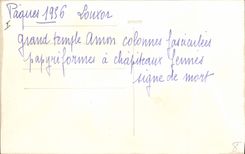 Pâques 1936 Louxor
Grand temple Amon colonnes fasciculées
papyriformes à châpiteaux fermés
signe de mort